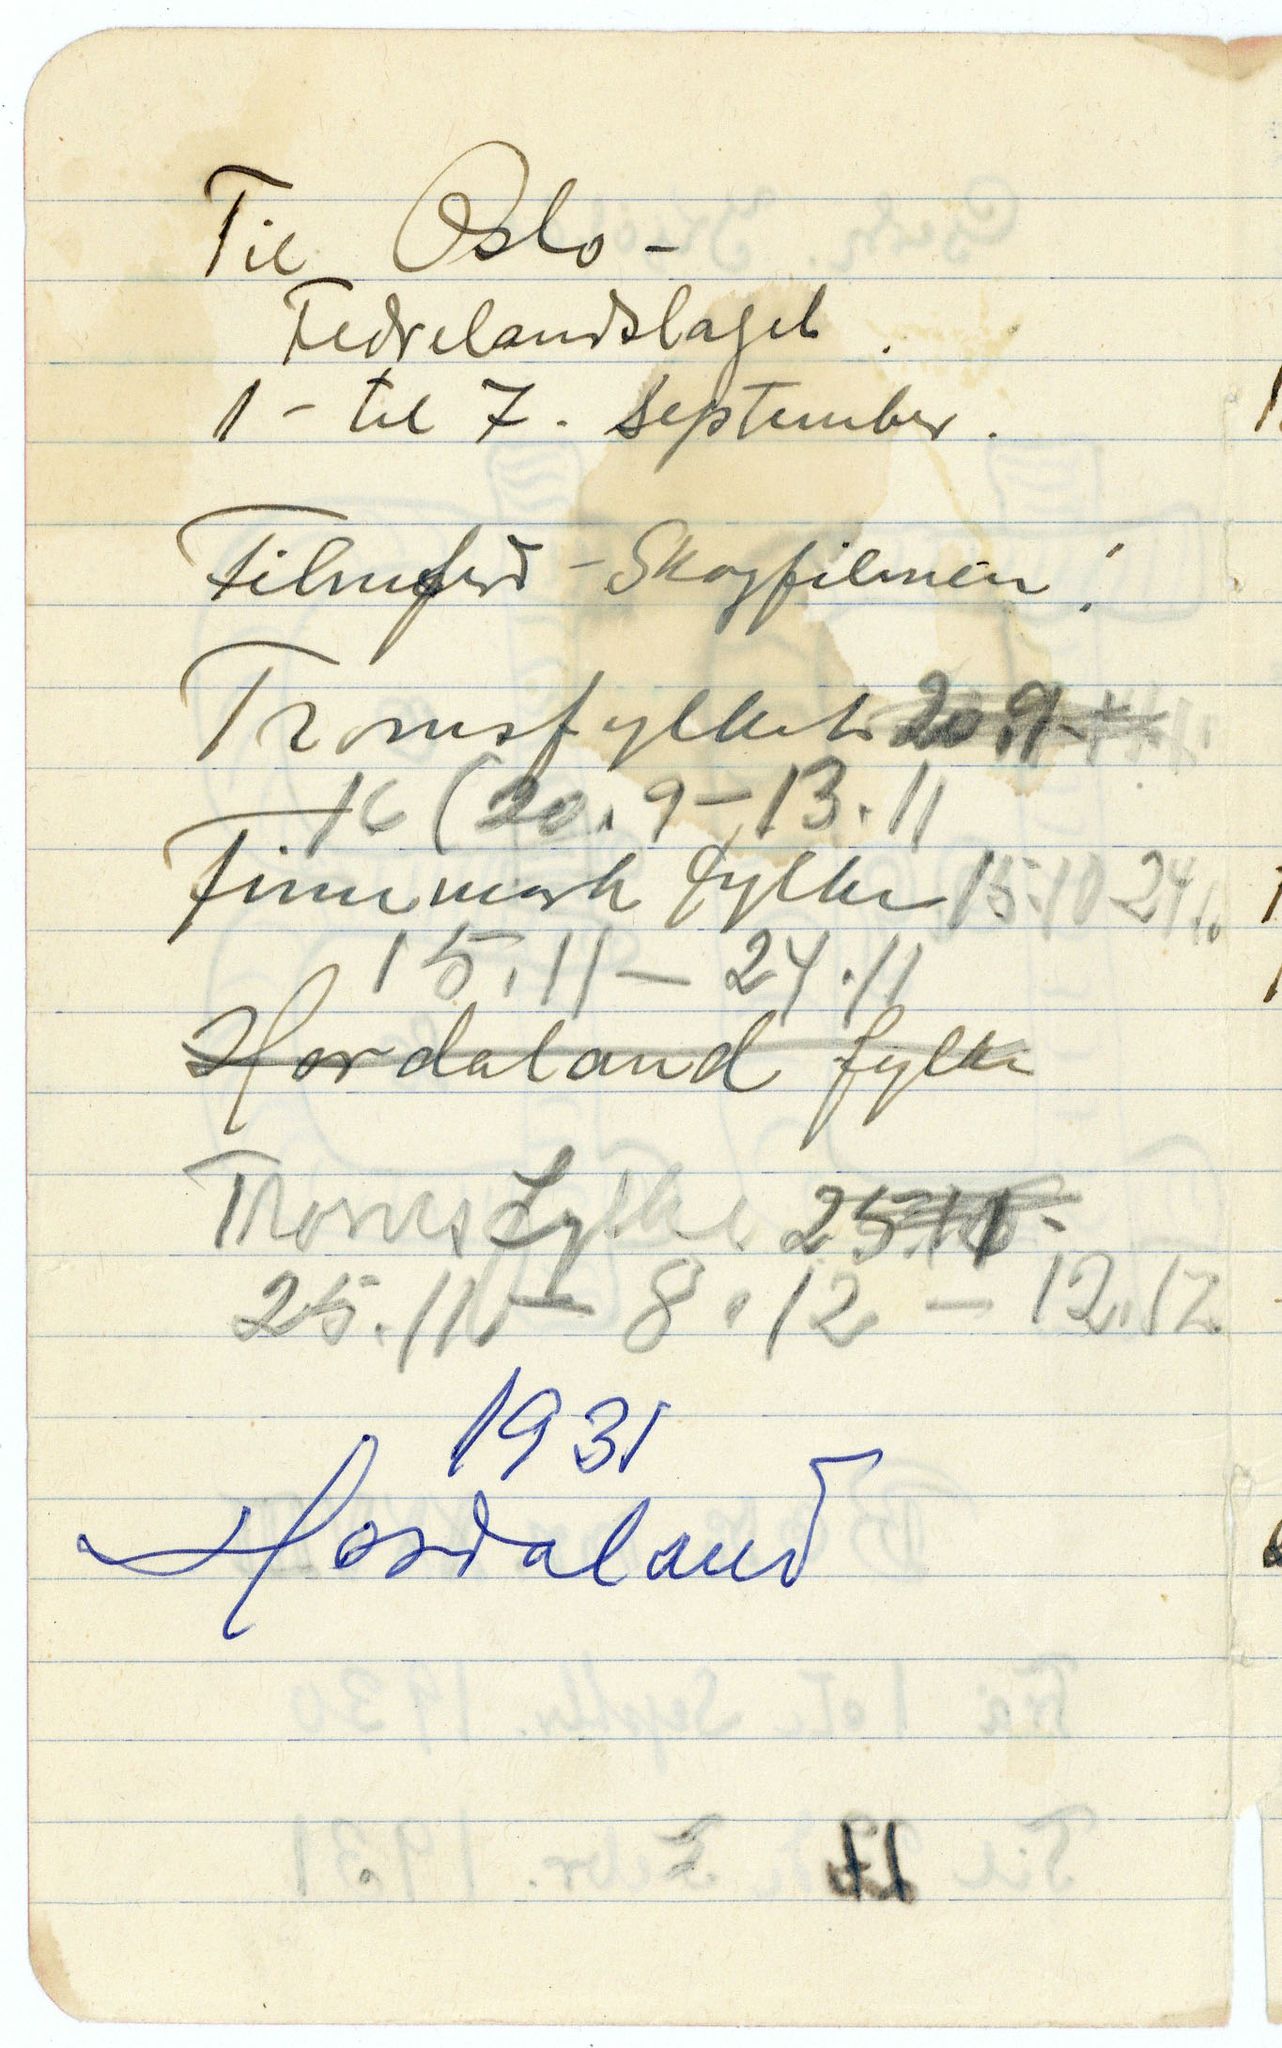 Til Oslo -
Fedrelandslaget.
1 - til 7. September.
Filmferd - Skogfilmen!
Tromsfylket 20.9
16 (20.9 - 13.11
Finnmark fylke 15.10 24.10
15.11 - 24.11
Hordaland fylke
Troms Fylke 25.11 -
25.11 - 8.12 - 12.12
1931
Hordaland